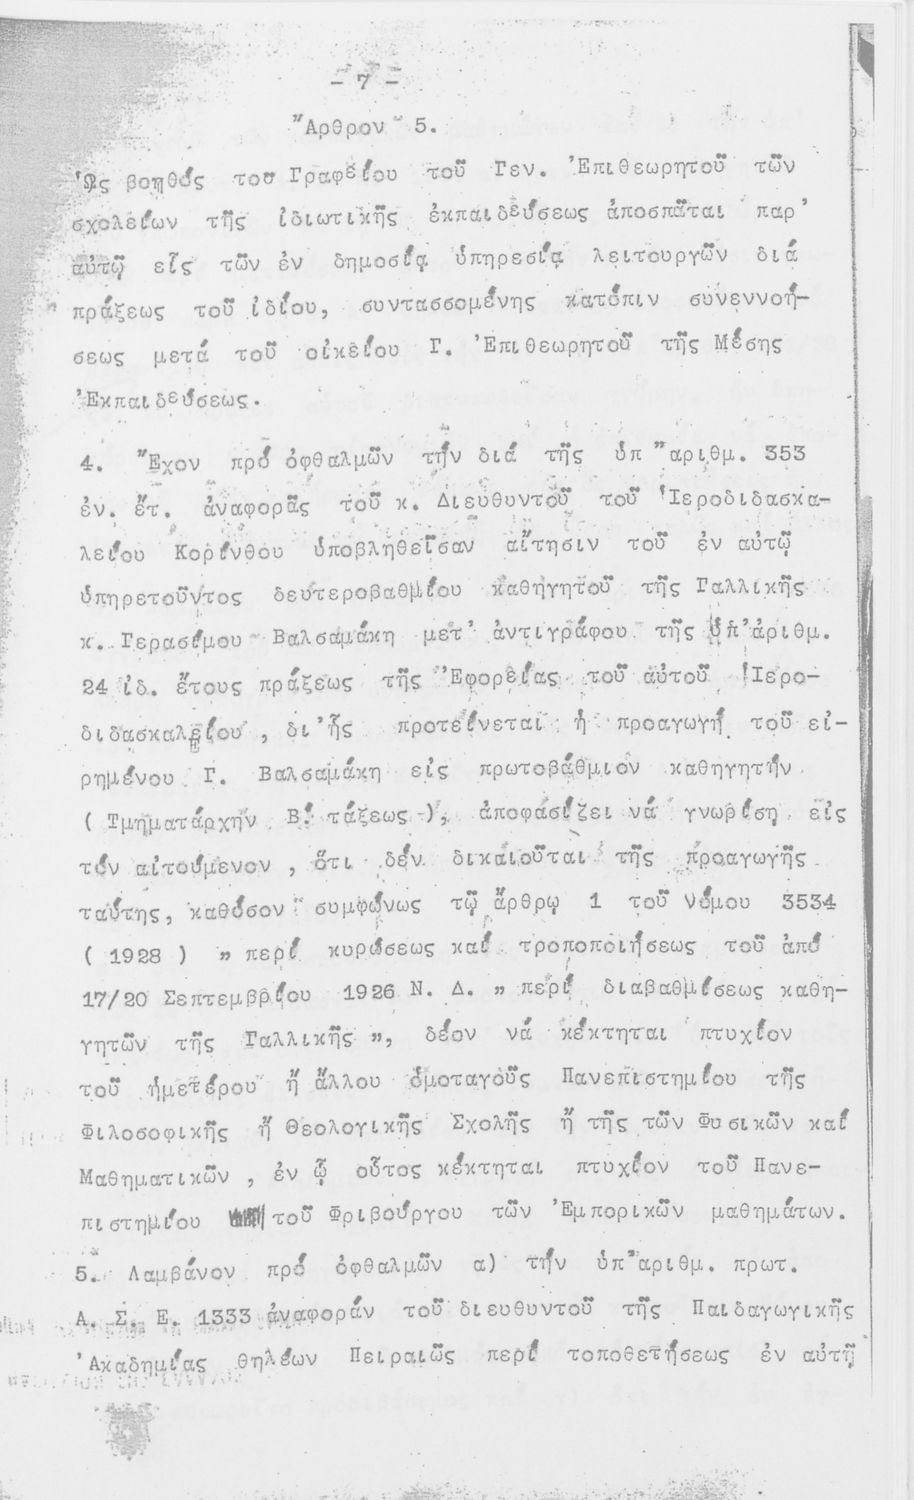 - 7 -
Ἄρθρον 5.
Ὡς βοηθός του Γραφείου τοῦ Γεν. Ἐπιθεωρητοῦ τῶν
σχολείων τῆς ἰδιωτικῆς ἐκπαιδεύσεως ἀποσπᾶται παρ'
αὐτῷ εἷς τῶν ἐν δημοσίᾳ ὑπηρεσίᾳ λειτουργῶν διά
πράξεως τοῦ ἰδίου, συντασσομένης κατόπιν συνεννοή-
σεως μετά τοῦ οἰκείου Γ. Ἐπιθεωρητοῦ τῆς Μέσης
Ἐκπαιδεύσεως.
4. Ἔχον πρό ὀφθαλμῶν τήν διά τῆς ὑπ' ἀριθμ. 353
ἐν. ἔτ. ἀναφορᾶς τοῦ κ. Διευθυντοῦ τοῦ Ἱεροδιδασκα-
λείου Κορίνθου ὑποβληθεῖσαν αἴτησιν τοῦ ἐν αὐτῷ
ὑπηρετοῦντος δευτεροβαθμίου καθηγητοῦ τῆς Γαλλικῆς
κ. Γερασίμου Βαλσαμάκη μετ' ἀντιγράφου τῆς ὑπ' ἀριθμ.
24 ἰδ. ἔτους πράξεως τῆς Ἐφορείας τοῦ αὐτοῦ Ἱερο-
διδασκαλείου, δι' ἧς προτείνεται ἡ προαγωγή τοῦ εἰ-
ρημένου Γ. Βαλσαμάκη εἰς πρωτοβάθμιον καθηγητήν
( Τμηματάρχην Β! τάξεως ), ἀποφασίζει νά γνωρίσῃ εἰς
τόν αἰτούμενον, ὅτι δέν δικαιοῦται τῆς προαγωγῆς
ταύτης, καθόσον συμφώνως τῷ ἄρθρῳ 1 τοῦ Νόμου 3534
( 1928 ) " περί κυρώσεως καί τροποποιήσεως τοῦ ἀπό
17/20 Σεπτεμβρίου 1926 Ν. Δ. " περί διαβαθμίσεως καθη-
γητῶν τῆς Γαλλικῆς ", δέον νά κέκτηται πτυχίον
τοῦ ἡμετέρου ἤ ἄλλου ὁμοταγοῦς Πανεπιστημίου τῆς
Φιλοσοφικῆς ἤ Θεολογικῆς Σχολῆς ἤ τῆς τῶν Φυσικῶν καί
Μαθηματικῶν, ἐν ᾧ οὗτος κέκτηται πτυχίον τοῦ Πανε-
πιστημίου τοῦ Φριβούργου τῶν Ἐμπορικῶν μαθημάτων.
5. Λαμβάνον πρό ὀφθαλμῶν α) τήν ὑπ' ἀριθμ. πρωτ.
Α. Σ. Ε. 1333 ἀναφοράν τοῦ διευθυντοῦ τῆς Παιδαγωγικῆς
Ἀκαδημίας θηλέων Πειραιῶς περί τοποθετήσεως ἐν αὐτῇ